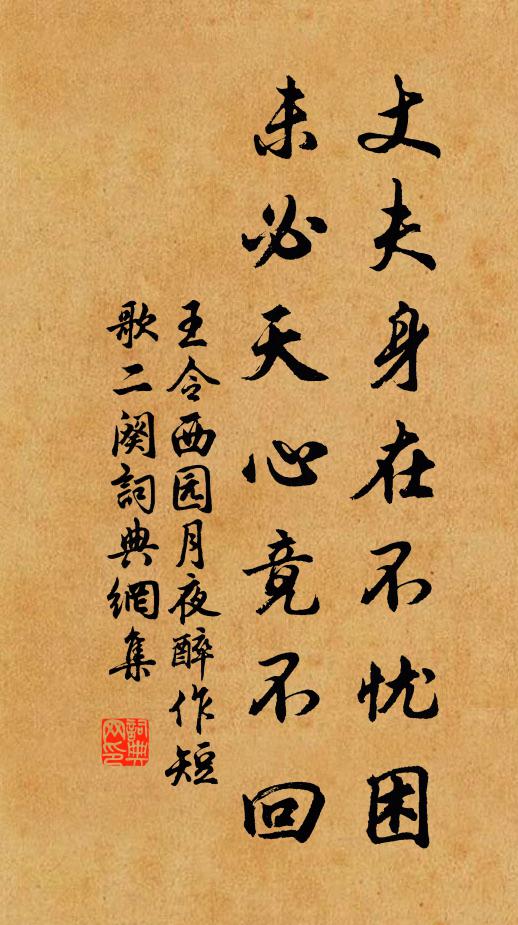 丈夫身在不忧困
未必天心竟不回
王令西园月夜醉作短
歌二阕詞典網集
詞典
网印